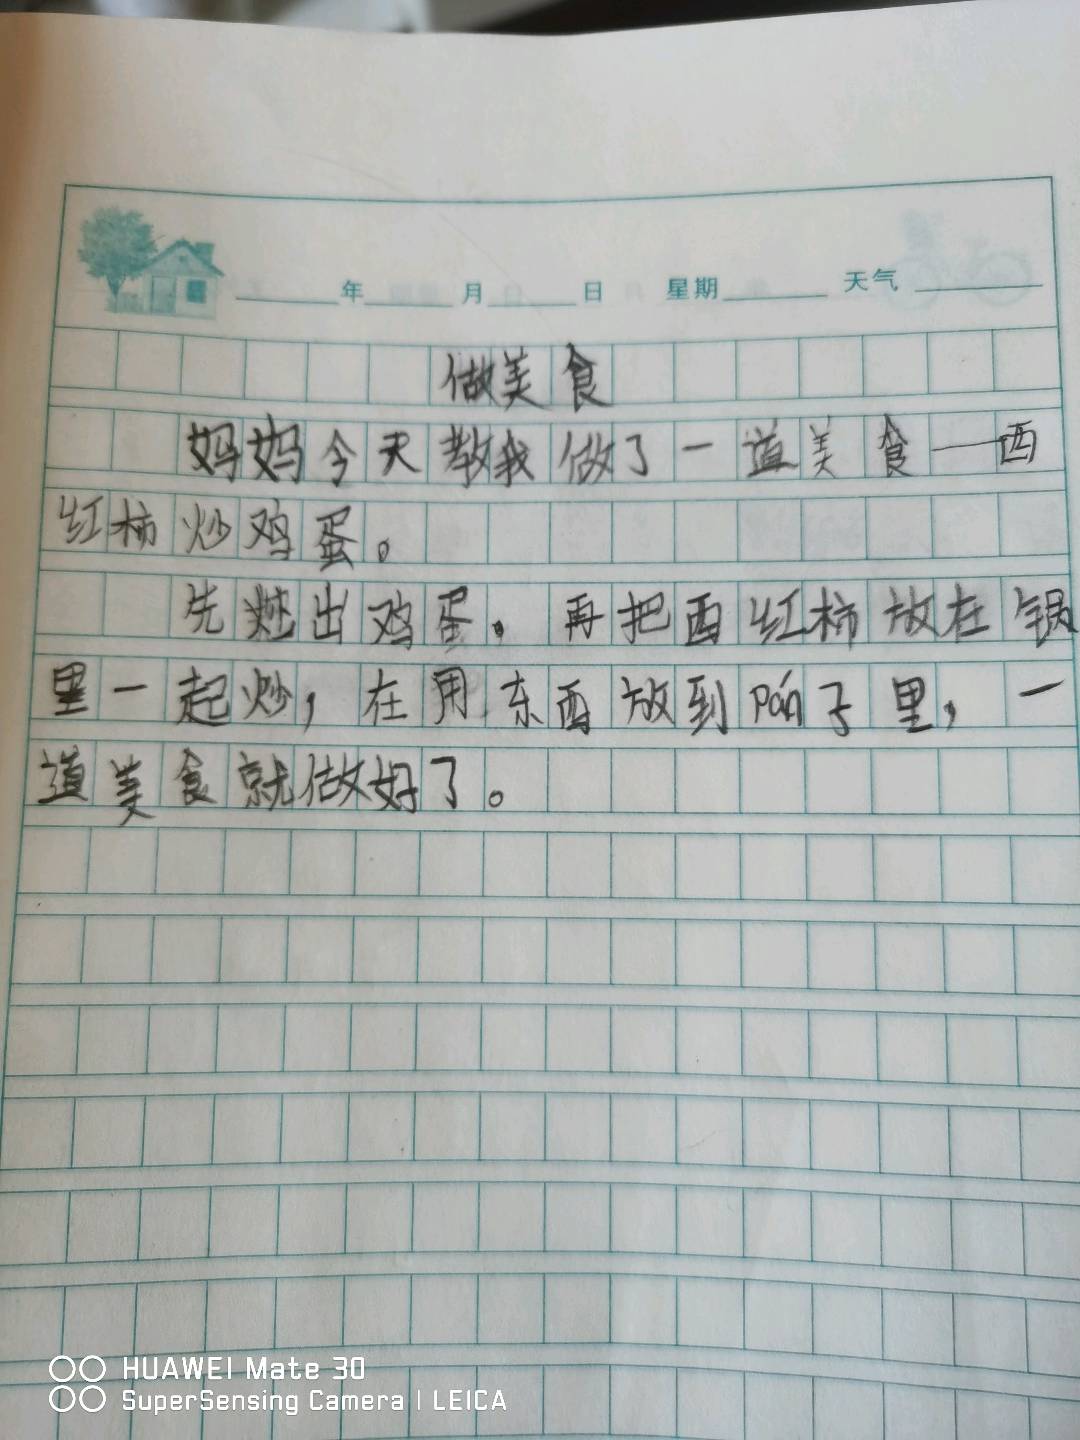 年 月 日 星期 天气
做美食
妈妈今天教我做了一道美食——西
红柿炒鸡蛋。
先炒出鸡蛋。再把西红柿放在锅
里一起炒，在用东西放到pán子里，一
道美食就做好了。
HUAWEI Mate 30
SuperSensing Camera | LEICA